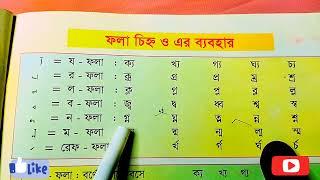 ফলা চিহ্ন ও এর ব্যবহার
য - ফলা : ক্য খ্য গ্য ঘ্য চ্য
র - ফলা : ক্র প্র ব্র ম্র শ্র
ল - ফলা : ক্ল গ্ল প্ল ব্ল ল্ল
ব - ফলা : জ্ব দ্ব ধ্ব শ্ব স্ব
ন - ফলা : গ্ন ঘ্ন ত্ন ন্ন শ্ন
ম - ফলা ন্ম ল্ম স্ম
= রেফ - ফলা র্খ র্গ র্ঘ র্চ
Like
ফলা : ক্য খ্য গ্য